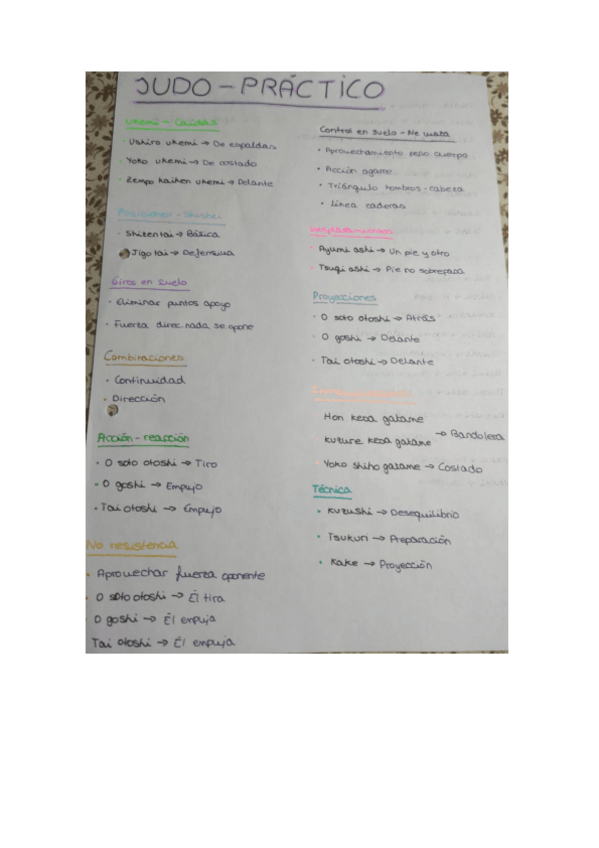 JUDO - PRÁCTICO
Ukemi - Caídas
· Ushiro ukemi → De espaldas
· Yoko ukemi → De costado
· Zempo kaiten ukemi → Delante
Posiciones - Shishei
· Shizentai → Básica
· Jigo tai → Defensiva
Giros en suelo
· Eliminar puntos apoyo
· Fuerza direc. nada se opone
Combinaciones
· Continuidad
· Dirección
Acción - reacción
· O soto otoshi → Tiro
· O goshi → Empujo
· Tai otoshi → Empujo
No resistencia
· Aprovechar fuerza oponente
· O soto otoshi → Él tira
· O goshi → Él empuja
Tai otoshi → Él empuja
Control en suelo - Ne waza
· Aprovechamiento peso cuerpo
· Acción agarre
· Triángulo hombros - cabeza
· Línea caderas
Desplazamientos
· Ayumi ashi → Un pie y otro
· Tsugi ashi → Pie no sobrepasa
Proyecciones
· O soto otoshi → Atrás
· O goshi → Delante
· Tai otoshi → Delante
Hon kesa gatame
kuzure kesa gatame → Bandolera
· Yoko shiho gatame → Costado
Técnica
· Kuzushi → Desequilibrio
· Tsukuri → Preparación
· Kake → Proyección